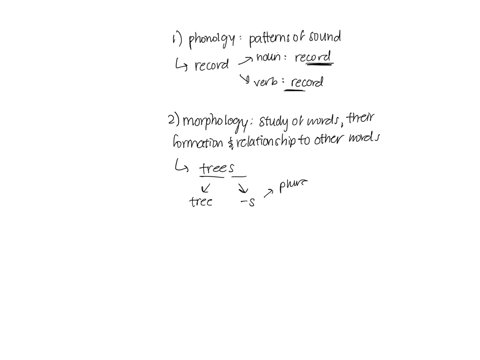 1) phonolgy: patterns of sound
↳ record → noun: record
↘ verb: record
2) morphology: study of words, their
formation & relationship to other words
↳ trees
tree -s → plura